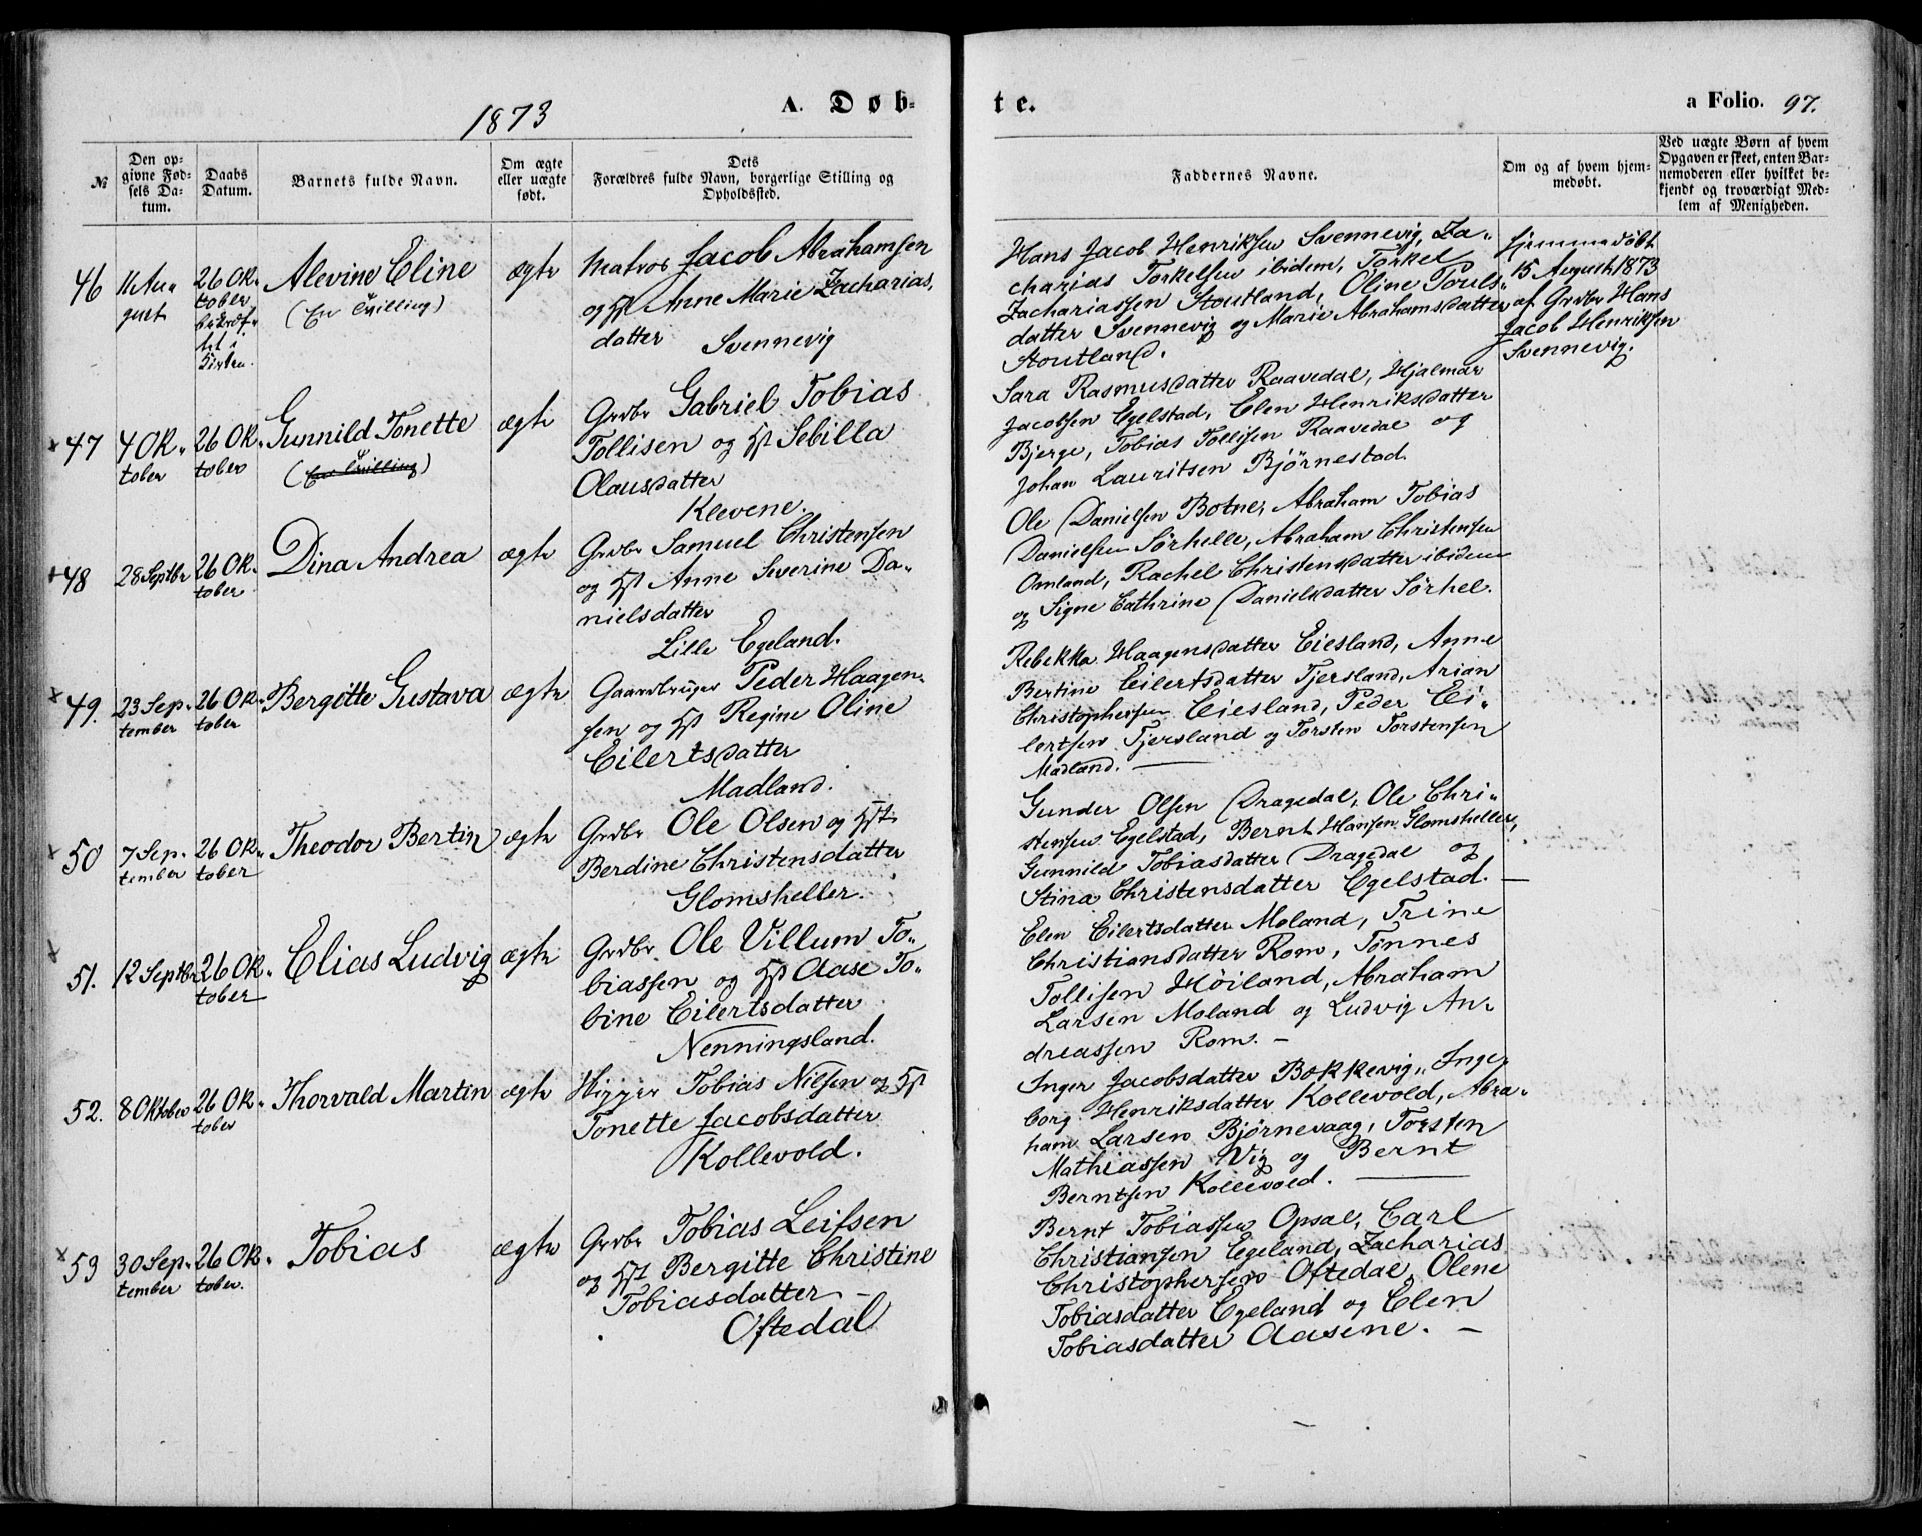 1873
A. Døb-
te.
a Folio. 97.
№
Den op-
givne Fød-
sels Da-
tum.
Daabs
Datum.
Barnets fulde Navn.
Om ægte
eller uægte
født.
Dets
Forældres fulde Navn, borgerlige Stilling og
Opholdssted.
Faddernes Navne.
Om og af hvem hjem-
medøbt.
Ved uægte Børn af hvem
Opgaven er skeet, enten Bar-
nemoderen eller hvilket be-
kjendt og troværdigt Med-
lem af Menigheden.
46
11 Au-
gust
26 Ok-
tober
bekræf-
tet i
Kirken.
Alevine Eline
(En Tvilling)
ægte
Matros Jacob Abrahamsen
og Hst Anne Marie Zacharias,
datter
Svennevig
Hans Jacob Henriksen Svennevig, Za-
charias Torkelsen ibidem, Torkel
Zachariassen Stoutland, Oline Pouls-
datter Svennevig og Marie Abrahamsdatter
Stoutland.
Hjemmedøbt
15 August 1873
af Grdbr Hans
Jacob Henriksen
Svennevig.
× 47
4 Ok-
tober
26 Ok-
tober
Gunnild Tonette
(En Tvilling)
ægte
Grdbr Gabriel Tobias
Tollisen og Hst Sebilla
Olausdatter
Klevene.
Sara Rasmusdatter Raavedal, Hjalmar
Jacobsen Egelstad, Elen Henriksdatter
Bjerge, Tobias Tollisen Raavedal og
Johan Lauritsen Bjørnestad.
+ 48
28 Septbr
26 Ok-
tober
Dina Andrea
ægte
Grdbr Samuel Christensen
og Hst Anne Severine Da-
nielsdatter
Lille Egeland.
Ole Danielsen Botne, Abraham Tobias
Danielsen Sørhelle, Abraham Christensen
Omland, Rachel Christensdatter ibidem
og Signe Cathrine Danielsdatter Sørhel.
× 49.
23 Sep-
tember
26 Ok-
tober
Bergitte Gustava
ægte
Gaardbruger Peder Haagen-
sen og Hst Regine Oline
Eilertsdatter
Madland.
Rebekka Haagensdatter Eiesland, Anne
Bertine Eilertsdatter Tjersland, Arian
Christophersen Eiesland, Peder Ei-
lertsen Tjersland og Torsten Torstensen
Madland.
× 50
7 Sep-
tember
26 Ok-
tober
Theodor Bertin
ægte
Grdbr Ole Olsen og Hst
Berdine Christensdatter
Glomsheller.
Gunder Olsen Dragedal, Ole Chri-
stensen Egelstad, Bernt Hansen Glomsheller,
Gunnild Tobiasdatter Dragedal og
Stina Christensdatter Egelstad.
× 51.
12 Septbr
26 Ok-
tober
Elias Ludvig
ægte
Grdbr Ole Villum To-
biassen og Hst Aase To-
bine Eilertsdatter
Nenningsland.
Elen Eilertsdatter Moland, Trine
Christiansdatter Rom, Tønnes
Tollisen Høiland, Abraham
Larsen Moland og Ludvig An-
dreassen Rom.
52.
8 Oktober
26 Ok-
tober
Thorvald Martin
ægte
Tobias Nilsen og Hst
Tonette Jacobsdatter
Kollevold.
Inger Jacobsdatter Bokkevig, Inge-
borg Henriksdatter Kollevold, Abra-
ham Larsen Bjørnevaag, Torsten
Mathiassen Vig og Bernt
Berntsen Kollevold.
× 53
30 Sep-
tember
26 Ok-
tober.
Tobias
ægte
Grdbr Tobias Leifsen
og Hst Bergitte Christine
Tobiasdatter
Oftedal
Bernt Tobiassen Opsal, Carl
Christiansen Egeland, Zacharias
Christophersen Oftedal, Olene
Tobiasdatter Egeland og Elen
Tobiasdatter Aasene.